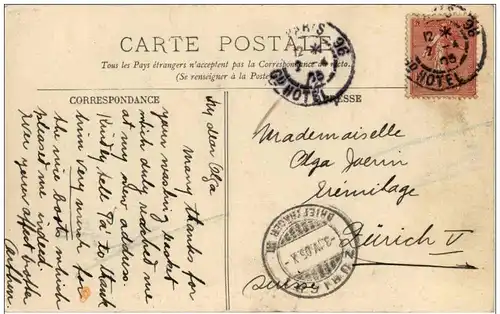 CARTE POSTALE
Tous les Pays étrangers n'acceptent pas la Correspondance au recto.
(Se renseigner à la Poste)
CORRESPONDANCE
ADRESSE
My dear Olga
Many thanks for
your washing basket
which duly reached me
at my new address.
Kindly tell Pa to thank
him very much for
the nice boots which
pleased me indeed.
Ever your affect brother
Arthur.
Mademoiselle
Olga
Eremitage
Zürich V
Suisse
PARIS 96
12
05
Gd HOTEL
PARIS 96
12
05
Gd HOTEL
ZÜRICH
BRIEFTRÄGER